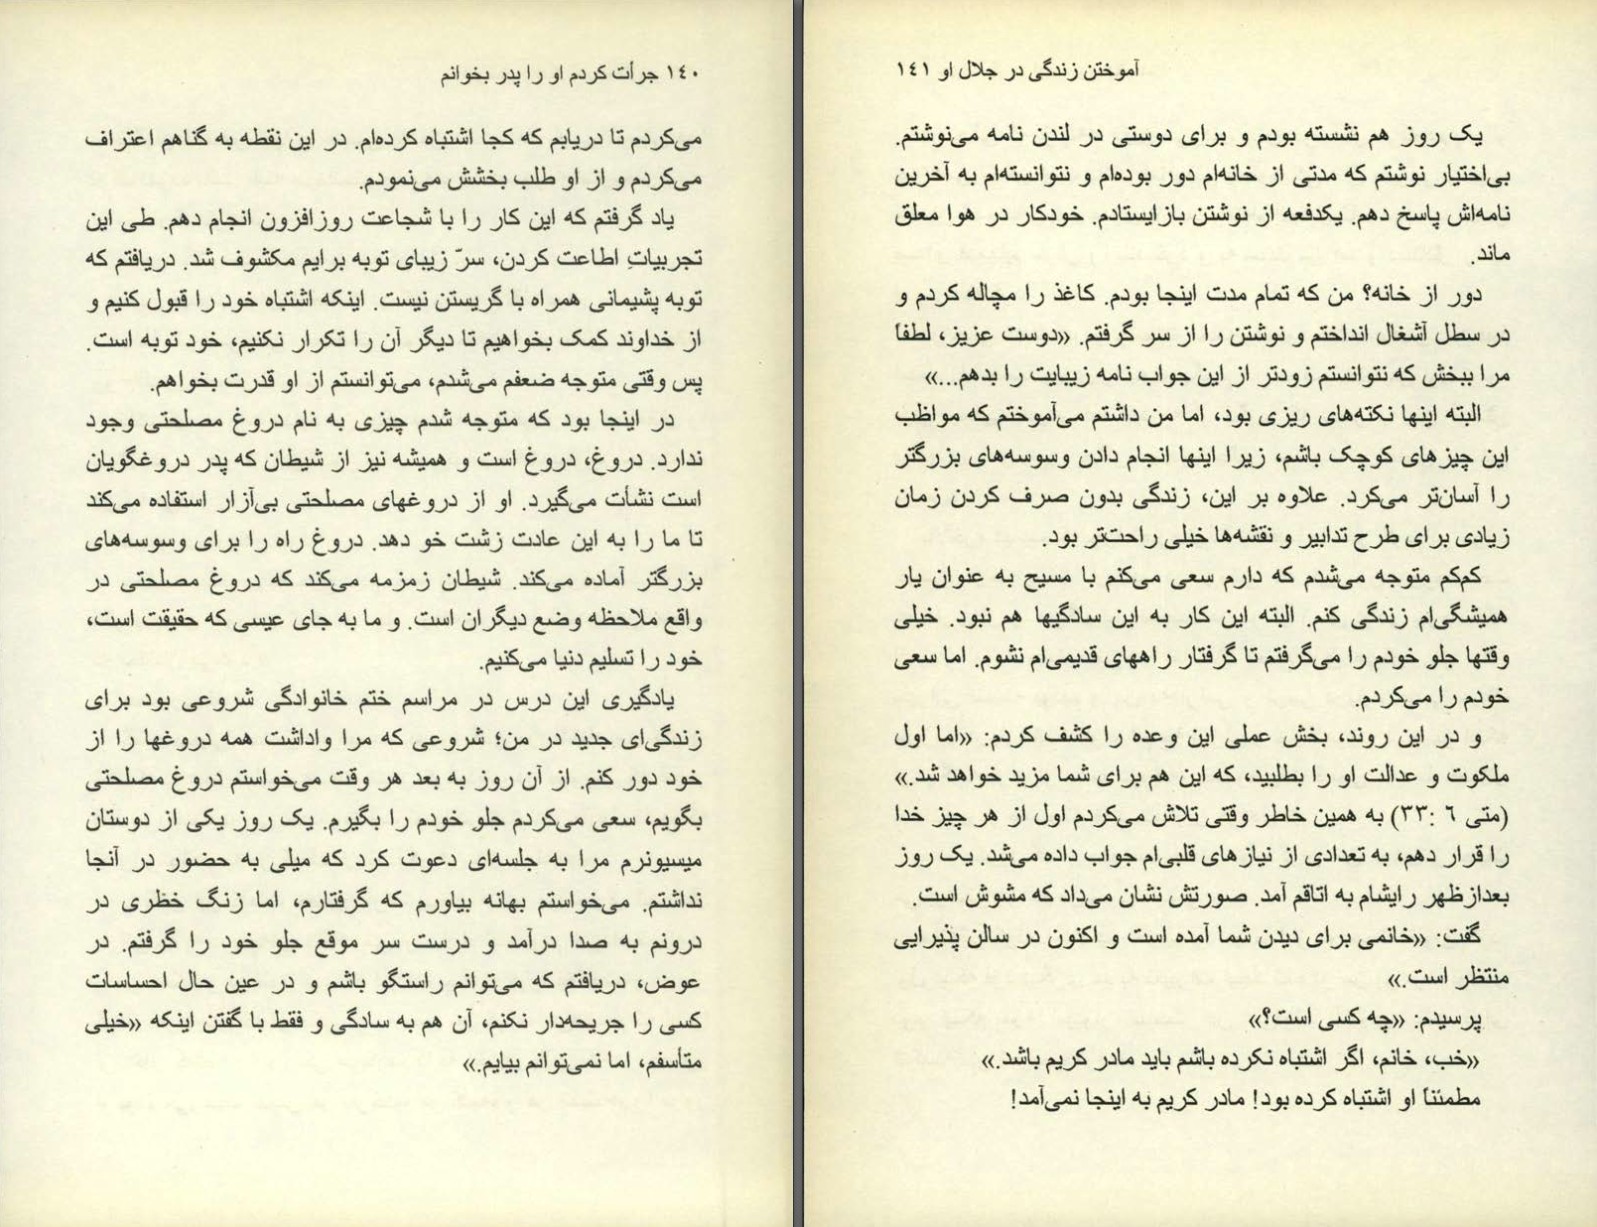 ۱٤۰ جرأت کردم او را پدر بخوانم
می‌کردم تا دریابم که کجا اشتباه کرده‌ام. در این نقطه به گناهم اعتراف
می‌کردم و از او طلب بخشش می‌نمودم.
یاد گرفتم که این کار را با شجاعت روزافزون انجام دهم. طی این
تجربیاتِ اطاعت کردن، سرّ زیبای توبه برایم مکشوف شد. دریافتم که
توبه پشیمانی همراه با گریستن نیست. اینکه اشتباه خود را قبول کنیم و
از خداوند کمک بخواهیم تا دیگر آن را تکرار نکنیم، خود توبه است.
پس وقتی متوجه ضعفم می‌شدم، می‌توانستم از او قدرت بخواهم.
در اینجا بود که متوجه شدم چیزی به نام دروغ مصلحتی وجود
ندارد. دروغ، دروغ است و همیشه نیز از شیطان که پدر دروغگویان
است نشأت می‌گیرد. او از دروغهای مصلحتی بی‌آزار استفاده می‌کند
تا ما را به این عادت زشت خو دهد. دروغ راه را برای وسوسه‌های
بزرگتر آماده می‌کند. شیطان زمزمه می‌کند که دروغ مصلحتی در
واقع ملاحظه وضع دیگران است. و ما به جای عیسی که حقیقت است،
خود را تسلیم دنیا می‌کنیم.
یادگیری این درس در مراسم ختم خانوادگی شروعی بود برای
زندگی‌ای جدید در من؛ شروعی که مرا واداشت همه دروغها را از
خود دور کنم. از آن روز به بعد هر وقت می‌خواستم دروغ مصلحتی
بگویم، سعی می‌کردم جلو خودم را بگیرم. یک روز یکی از دوستان
میسیونرم مرا به جلسه‌ای دعوت کرد که میلی به حضور در آنجا
نداشتم. می‌خواستم بهانه بیاورم که گرفتارم، اما زنگ خظری در
درونم به صدا درآمد و درست سر موقع جلو خود را گرفتم. در
عوض، دریافتم که می‌توانم راستگو باشم و در عین حال احساسات
کسی را جریحه‌دار نکنم، آن هم به سادگی و فقط با گفتن اینکه «خیلی
متأسفم، اما نمی‌توانم بیایم.»
آموختن زندگی در جلال او ۱٤۱
یک روز هم نشسته بودم و برای دوستی در لندن نامه می‌نوشتم.
بی‌اختیار نوشتم که مدتی از خانه‌ام دور بوده‌ام و نتوانسته‌ام به آخرین
نامه‌اش پاسخ دهم. یکدفعه از نوشتن بازایستادم. خودکار در هوا معلق
ماند.
دور از خانه؟ من که تمام مدت اینجا بودم. کاغذ را مچاله کردم و
در سطل آشغال انداختم و نوشتن را از سر گرفتم. «دوست عزیز، لطفاً
مرا ببخش که نتوانستم زودتر از این جواب نامه زیبایت را بدهم...»
البته اینها نکته‌های ریزی بود، اما من داشتم می‌آموختم که مواظب
این چیزهای کوچک باشم، زیرا اینها انجام دادن وسوسه‌های بزرگتر
را آسان‌تر می‌کرد. علاوه بر این، زندگی بدون صرف کردن زمان
زیادی برای طرح تدابیر و نقشه‌ها خیلی راحت‌تر بود.
کم‌کم متوجه می‌شدم که دارم سعی می‌کنم با مسیح به عنوان یار
همیشگی‌ام زندگی کنم. البته این کار به این سادگیها هم نبود. خیلی
وقتها جلوِ خودم را می‌گرفتم تا گرفتار راههای قدیمی‌ام نشوم. اما سعی
خودم را می‌کردم.
و در این روند، بخش عملی این وعده را کشف کردم: «اما اول
ملکوت و عدالت او را بطلبید، که این هم برای شما مزید خواهد شد.»
(متی ٦ :۳۳) به همین خاطر وقتی تلاش می‌کردم اول از هر چیز خدا
را قرار دهم، به تعدادی از نیازهای قلبی‌ام جواب داده می‌شد. یک روز
بعدازظهر رایشام به اتاقم آمد. صورتش نشان می‌داد که مشوش است.
گفت: «خانمی برای دیدن شما آمده است و اکنون در سالن پذیرایی
منتظر است.»
پرسیدم: «چه کسی است؟»
«خب، خانم، اگر اشتباه نکرده باشم باید مادر کریم باشد.»
مطمئناً او اشتباه کرده بود! مادر کریم به اینجا نمی‌آمد!